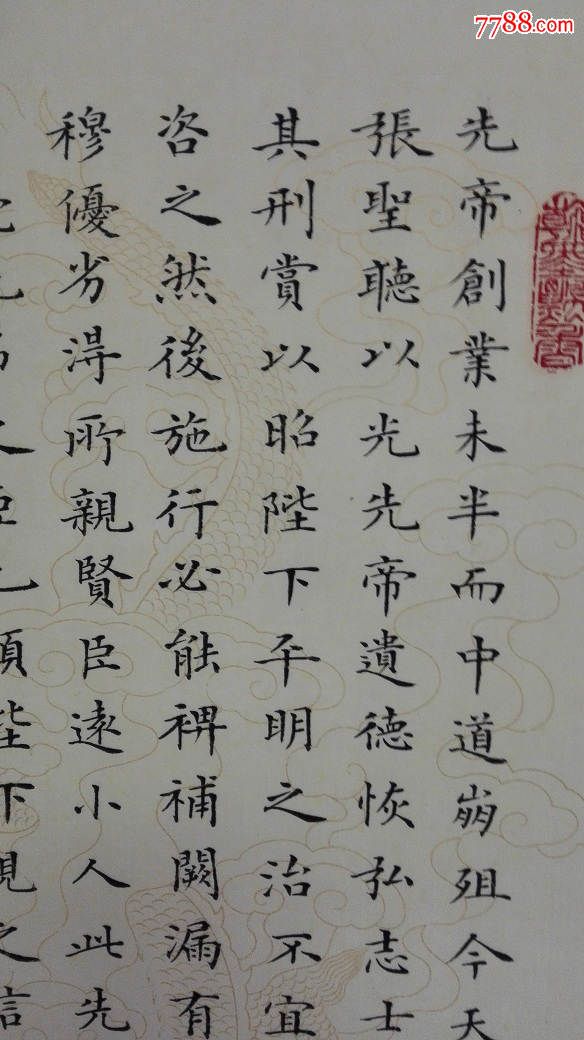 7788.com
先帝創業未半而中道崩殂今天
張聖聽以光先帝遺德恢弘志士
其刑賞以昭陛下平明之治不宜
咨之然後施行必能裨補闕漏有
穆優劣得所親賢臣遠小人此先
之臣也願陛下親之信